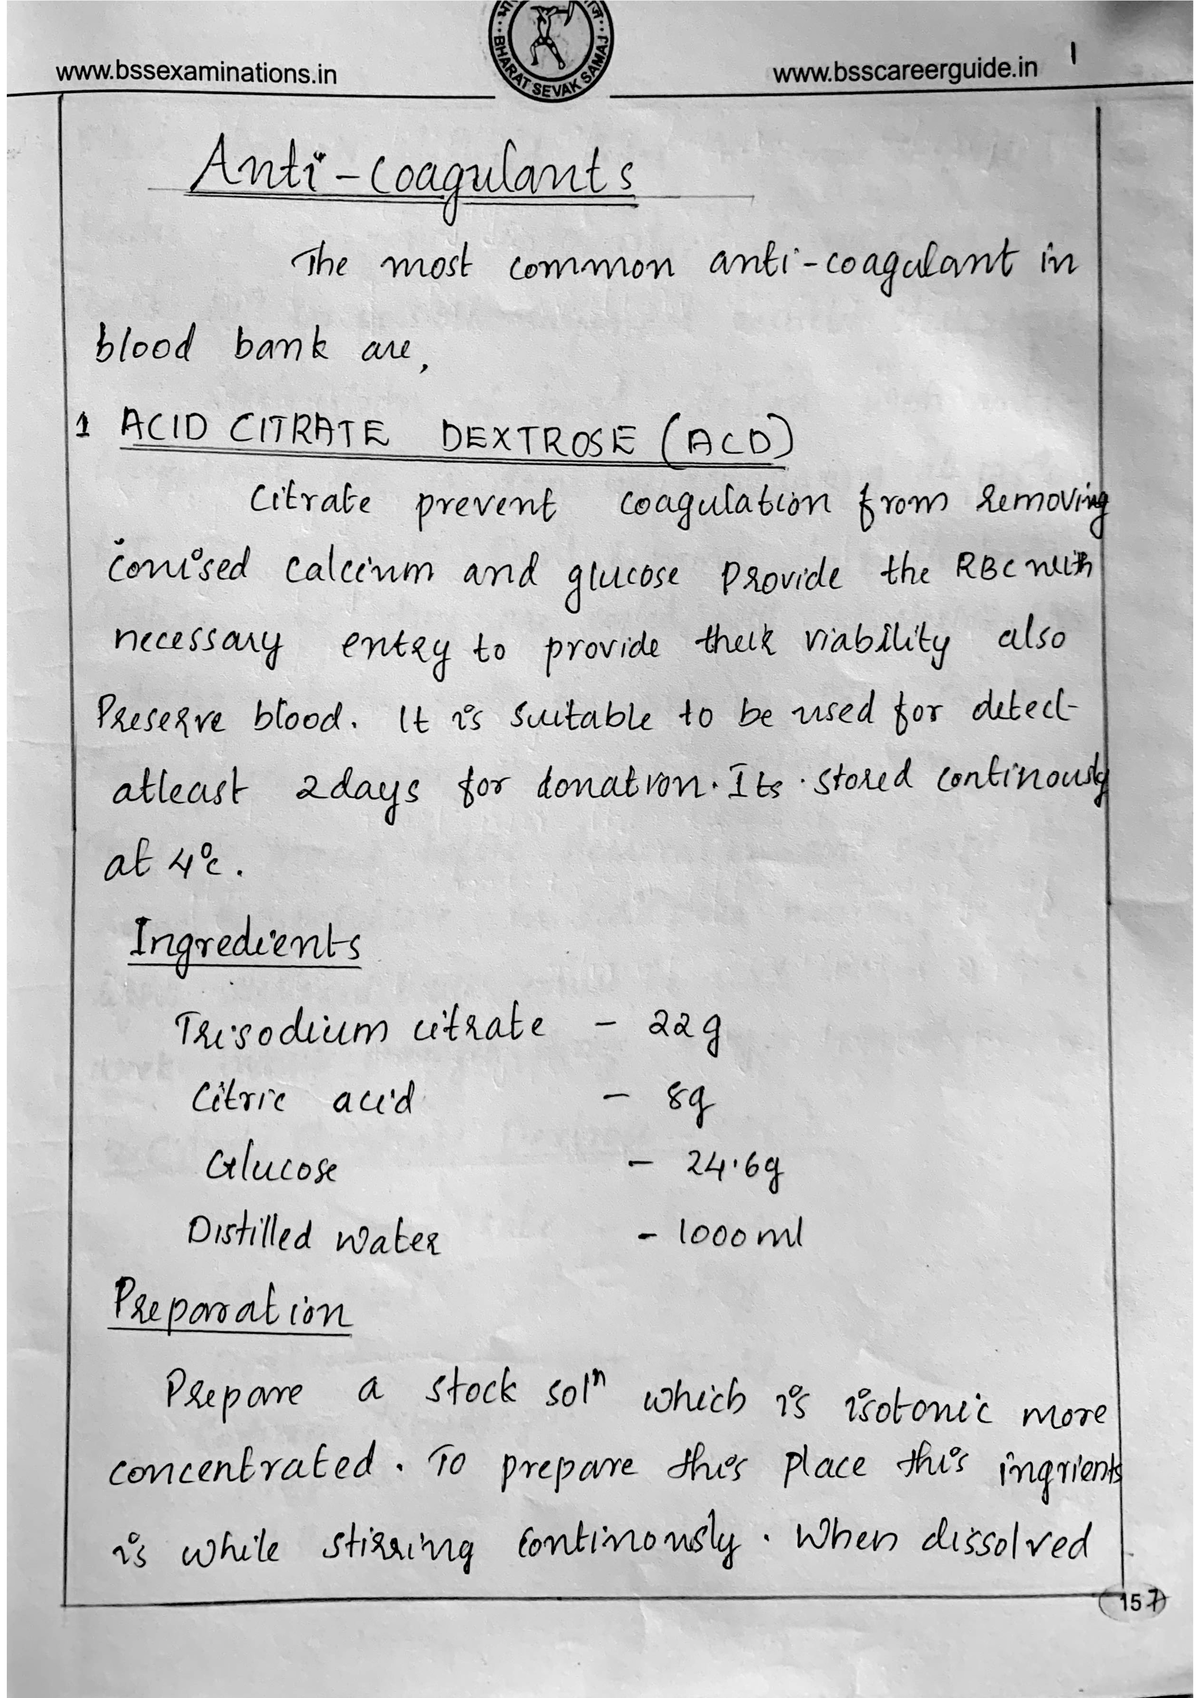 www.bssexaminations.in
BHARAT SEVAK SAMAJ
www.bsscareerguide.in
1
Anti-coagulants
The most common anti-coagulant in
blood bank are,
1 ACID CITRATE DEXTROSE (ACD)
Citrate prevent coagulation from removing
ionised calcium and glucose provide the RBC with
necessary entry to provide their viability also
Preserve blood. It is suitable to be used for detect-
atleast 2days for donation. Its . stored continously
at 4°c.
Ingredients
Trisodium citrate - 22g
Citric acid - 8g
Glucose - 24.6g
Distilled water - 1000ml
Preparation
Prepare a stock solⁿ which is isotonic more
concentrated. To prepare this place this ingrients
is while stirring continously. When dissolved
157